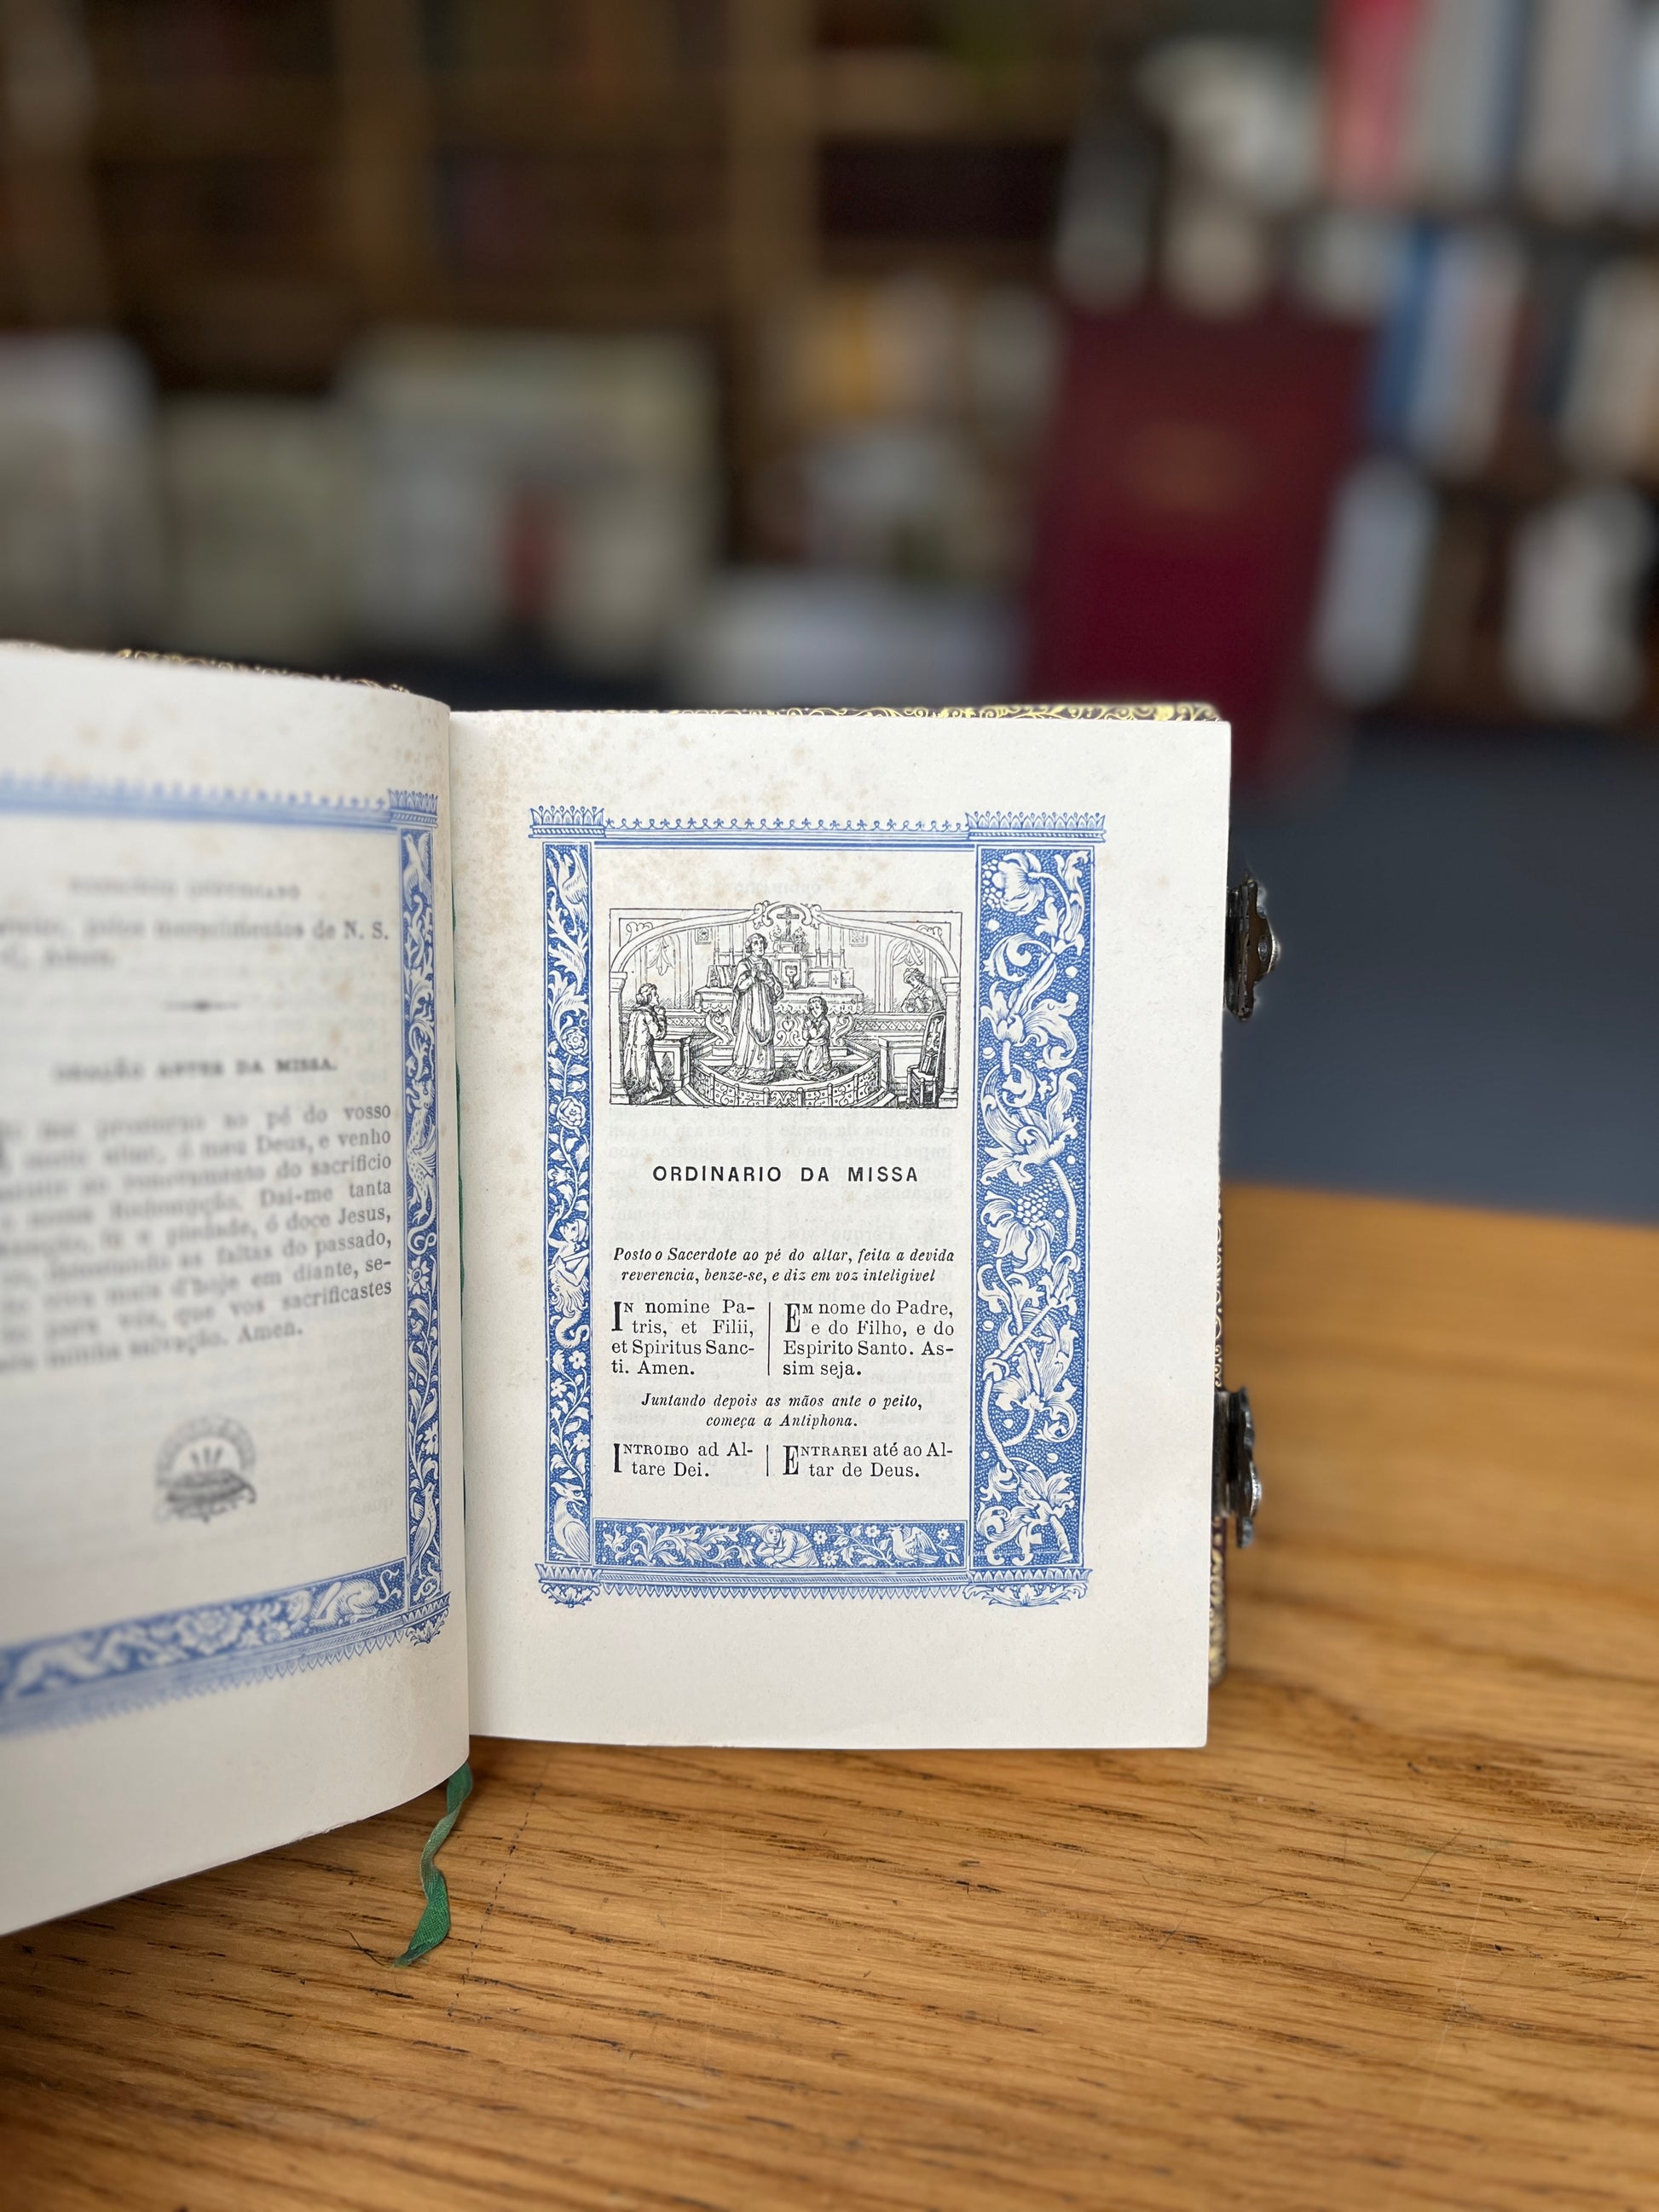 de N. S.
Amen.
ORAÇÃO ANTES DA MISSA.
me prostrar ao pé do vosso
altar, ó meu Deus, e venho
do sacrificio
nossa Redempção. Dai-me tanta
fé e piedade, ó doce Jesus,
as faltas do passado,
mais d'hoje em diante, se-
para vós, que vos sacrificastes
minha salvação. Amen.
ORDINARIO DA MISSA
Posto o Sacerdote ao pé do altar, feita a devida
reverencia, benze-se, e diz em voz inteligivel
IN nomine Pa-
tris, et Filii,
et Spiritus Sanc-
ti. Amen.
EM nome do Padre,
e do Filho, e do
Espirito Santo. As-
sim seja.
Juntando depois as mãos ante o peito,
começa a Antiphona.
INTROIBO ad Al-
tare Dei.
ENTRAREI até ao Al-
tar de Deus.